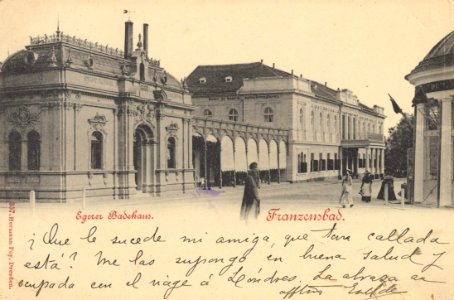 Egerer Badehaus.
Franzensbad.
357. Hermann Poy, Dresden.
¿Que le sucede mi amiga, que tan callada
está? Me las supongo en buena salud y
ocupada con el viaje a Lóndres. La abraza su